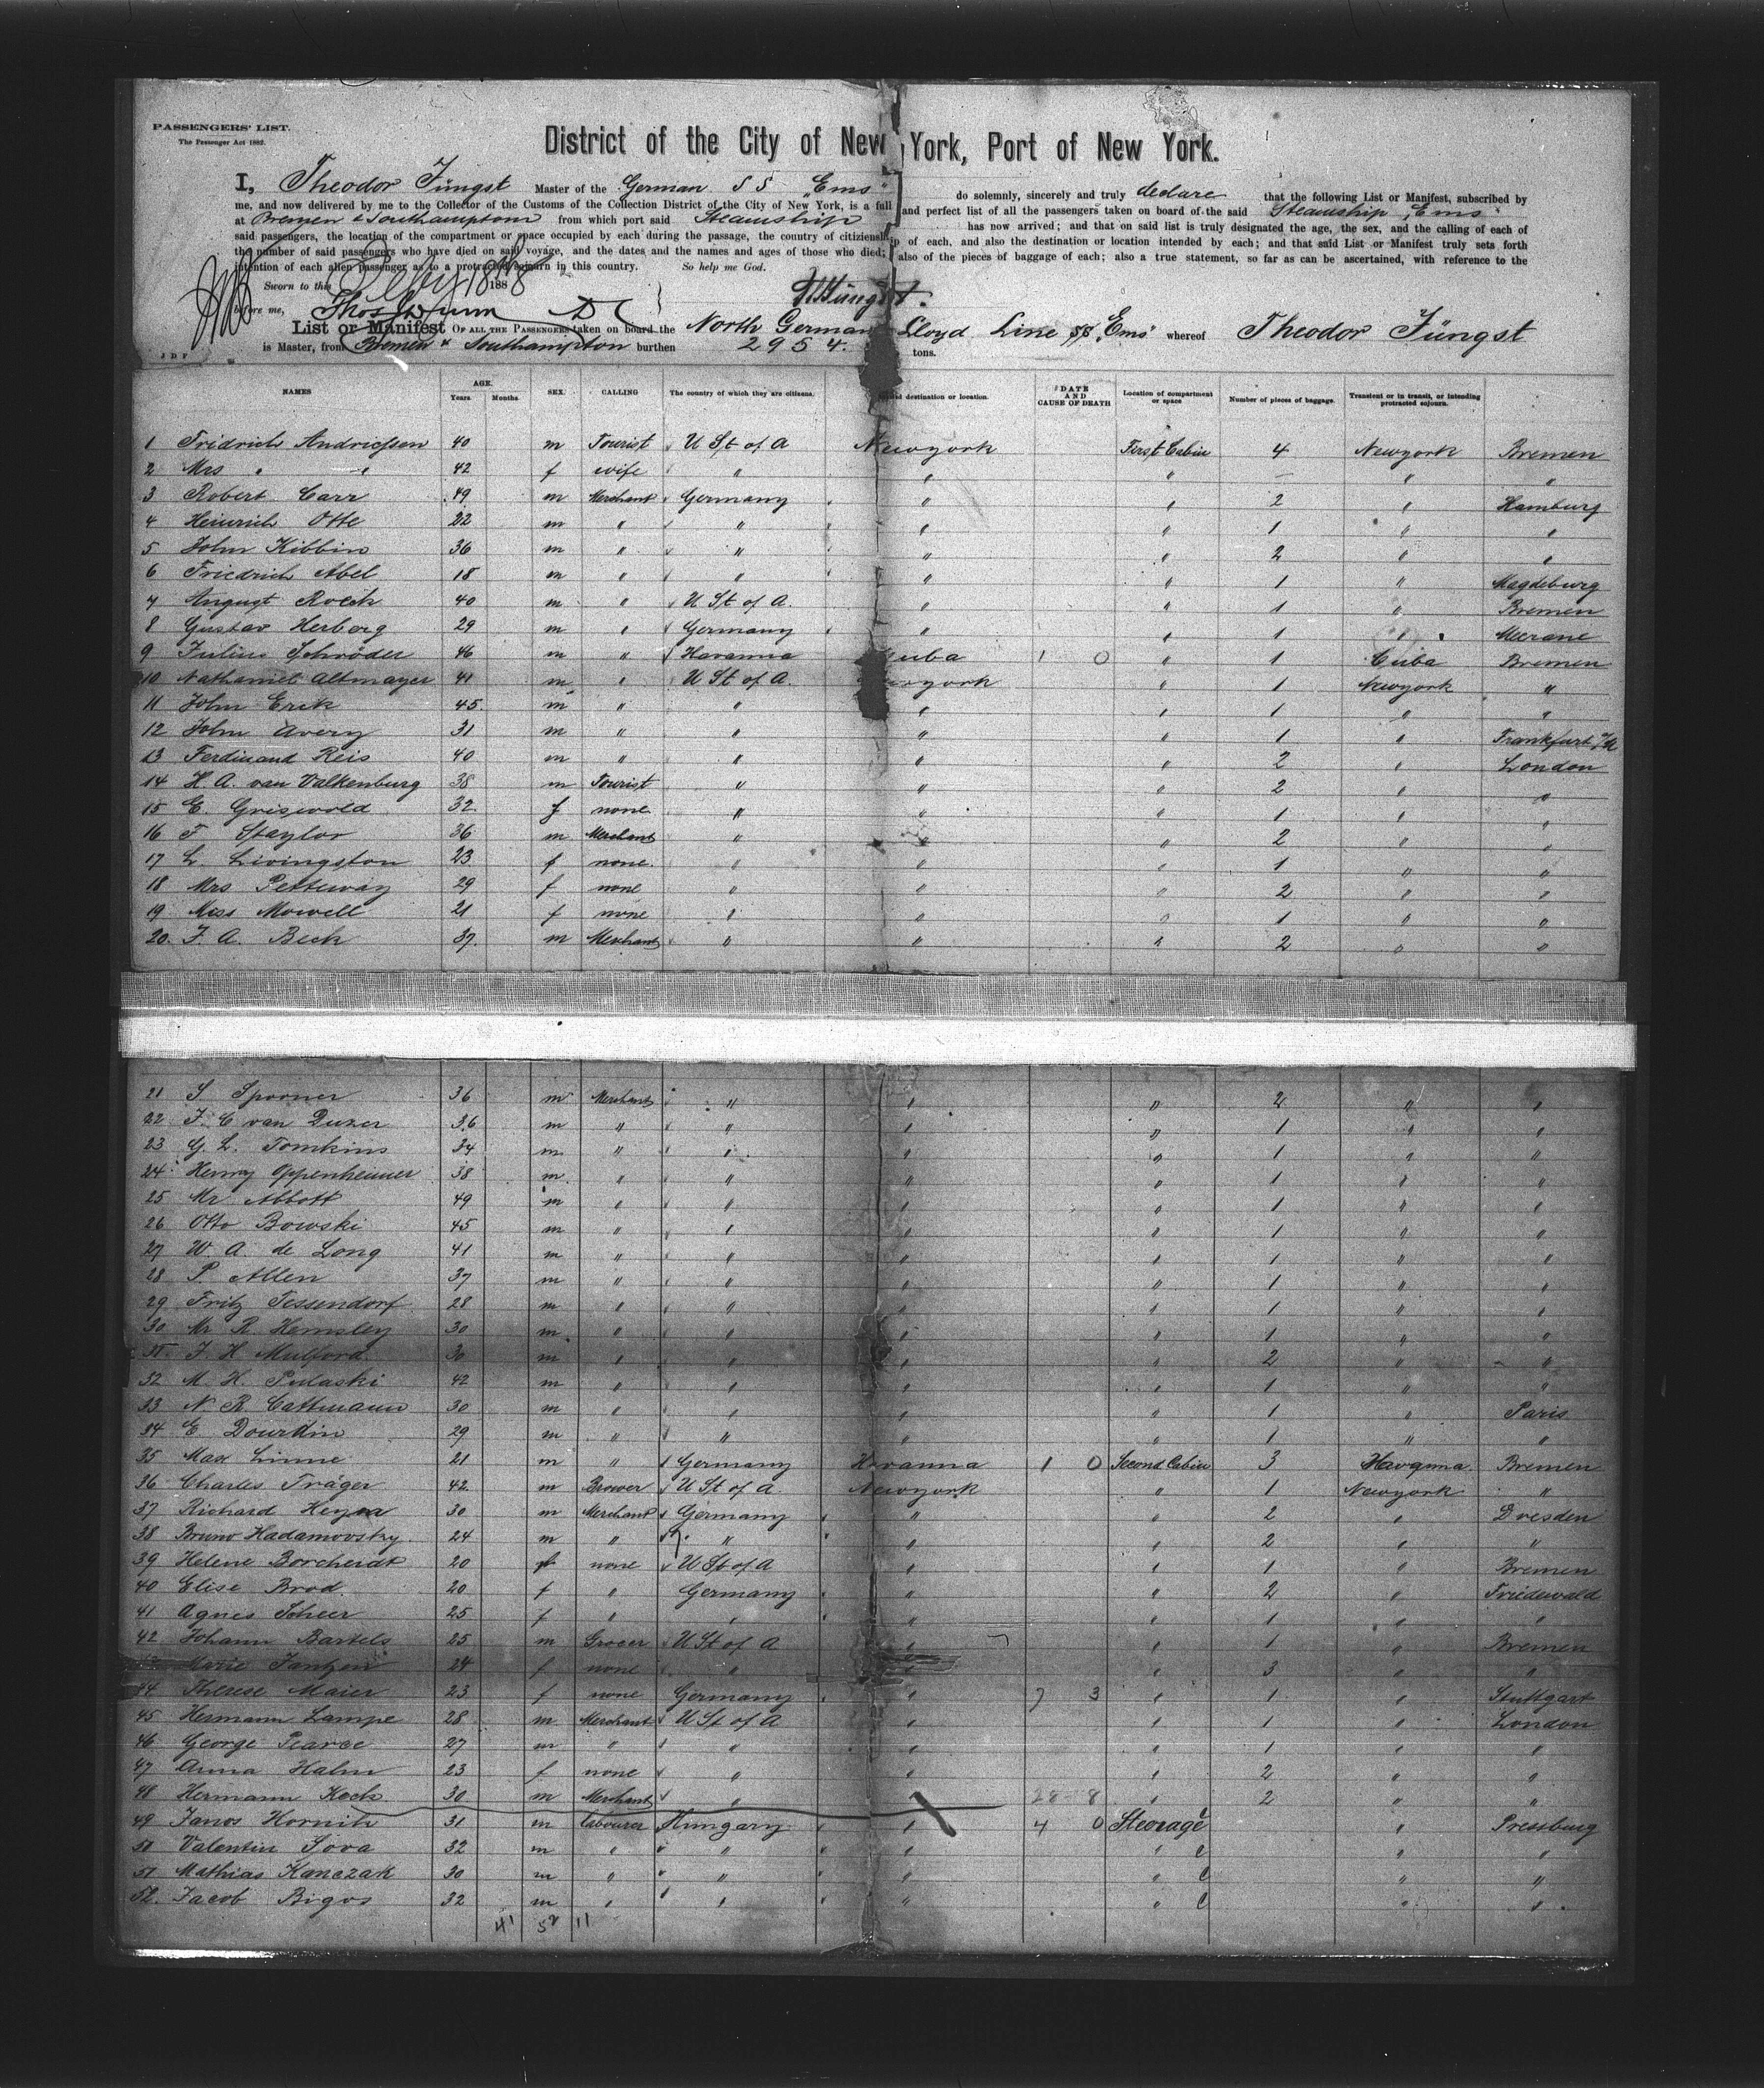 PASSENGERS' LIST.
The Passenger Act 1882.
District of the City of New York, Port of New York.
I, Theodor Jüngst Master of the German SS „Ems" do solemnly, sincerely and truly declare that the following List or Manifest, subscribed by
me, and now delivered by me to the Collector of the Customs of the Collection District of the City of New York, is a full and perfect list of all the passengers taken on board of the said Steamship „Ems"
at Bremen & Southampton from which port said Steamship has now arrived; and that on said list is truly designated the age, the sex, and the calling of each of
said passengers, the location of the compartment or space occupied by each during the passage, the country of citizenship of each, and also the destination or location intended by each; and that said List or Manifest truly sets forth
the number of said passengers who have died on said voyage, and the dates and the names and ages of those who died; also of the pieces of baggage of each; also a true statement, so far as can be ascertained, with reference to the
intention of each alien passenger as to a protracted sojourn in this country. So help me God.
Sworn to this Feby 18th 1888
Th Jüngst.
before me, Thos Dunn
List or Manifest OF ALL THE PASSENGERS taken on board the North German Lloyd Line SS „Ems" whereof Theodor Jüngst
is Master, from Bremen & Southampton burthen 2954. tons.
J D F
NAMES AGE. Years. Months. SEX. CALLING The country of which they are citizens. destination or location. DATE AND CAUSE OF DEATH Location of compartment or space Number of pieces of baggage. Transient or in transit, or intending protracted sojourn.
1 Fridrich Andriessen 40 m Tourist U St of A Newyork First Cabin 4 Newyork Bremen
2 Mrs " " 42 f wife " " " — " "
3 Robert Carr 49 m Merchant Germany " " 2 " Hamburg
4 Heinrich Otte 22 m " " " " 1 " "
5 John Kibbin 36 m " " " " 2 " "
6 Friedrich Abel 18 m " " " " 1 " Magdeburg
7 August Roech 40 m " U St of A. " " 1 " Bremen
8 Gustav Herberg 29 m " Germany " " 1 " Meerane
9 Julius Schröder 46 m " Havanna Cuba 1 0 " 1 Cuba Bremen
10 Nathaniel Altmayer 41 m " U St of A. Newyork " 1 Newyork "
11 John Erck 45. m " " " " 1 " "
12 John Avery 31 m " " " " 1 " Frankfurt a/M
13 Ferdinand Reis 40 m " " " " 2 " London
14 H A. van Valkenburg 38 m Tourist " " " 2 " "
15 E. Griswold 32. f none " " " 1 " "
16 F Staylor 36 m Merchant " " " 2 " "
17 L. Livingston 23 f none. " " " 1 " "
18 Mrs Petteway 29 f none " " " 2 " "
19 Miss Mowell 21 f none " " " 1 " "
20. J. A. Beck 37. m Merchant " " " 2 " "
21 S Spooner 36 m Merchant " " " 2 " "
22 J. C van Duzer 36 m " " " " 1 " "
23 G. L. Tomkins 34 m " " " " 1 " "
24 Henry Oppenheimer 38 m. " " " " 1 " "
25 Mr Abbott 49 m " " " " 1 " "
26 Otto Bowski 45 m " " " " 1 " "
27 W A de Long 41 m " " " " 1 " "
28 P. Allen 37 m " " " " 1 " "
29 Fritz Tessendorf 28 m " " " " 1 " "
30 Mr R. Hemsley 30 m " " " " 1 " "
31. J H Mulford 30 m " " " " 2 " "
32 M. H. Pulaski 42 m " " " " 1 " "
33 N R. Cattmann 30 m " " " " 1 " Paris
34 E Dourdin 29 m " " " " 1 " "
35 Max Linne 21 m " Germany Havanna 1 0 Second Cabin 3 Havanna Bremen
36 Charles Träger 42 m Brewer U St of A Newyork " 1 Newyork "
37 Richard Heyna 30 m Merchant Germany " " 2 " Dresden
38 Bruno Hadamovsky 24 m " " " " 2 " "
39 Helene Borcherdt 20 f none U St of A " " 1 " Bremen
40 Elise Brod 20 f " Germany " " 2 " Friedewald
41 Agnes Scheer 25 f " " " " 1 " "
42 Johann Bartels 25 m Grocer U St of A " " 1 " Bremen
Marie Jantzen 24 f none " " " 3 " "
44 Therese Maier 23 f none Germany " 7 3 " 1 " Stuttgart
45 Hermann Lampe 28 m Merchant U St of A " " 1 " London
46 George Pearce 27 m " " " " 1 " "
47 Anna Halm 23 f none " " " 2 " "
48 Hermann Koch 30 m Merchant " " 28 8 " 2 " "
49 Janos Hornik 31 m labourer Hungary " 4 0 Steerage " Pressburg
50 Valentin Sova 32 m " " " " " "
51 Mathias Kanczak 30 m " " " " " "
52. Jacob Bigos 32 m " " " " " "
41 52 11